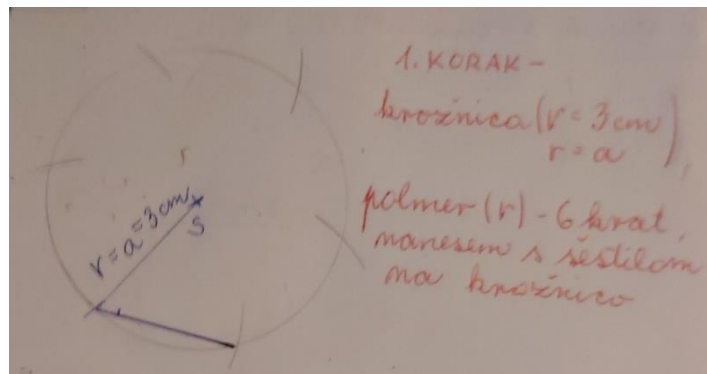 r = a = 3 cm
S
1. KORAK -
krožnica (r = 3 cm
r = a),
polmer (r) - 6 krat
nanesem s šestilom
na krožnico